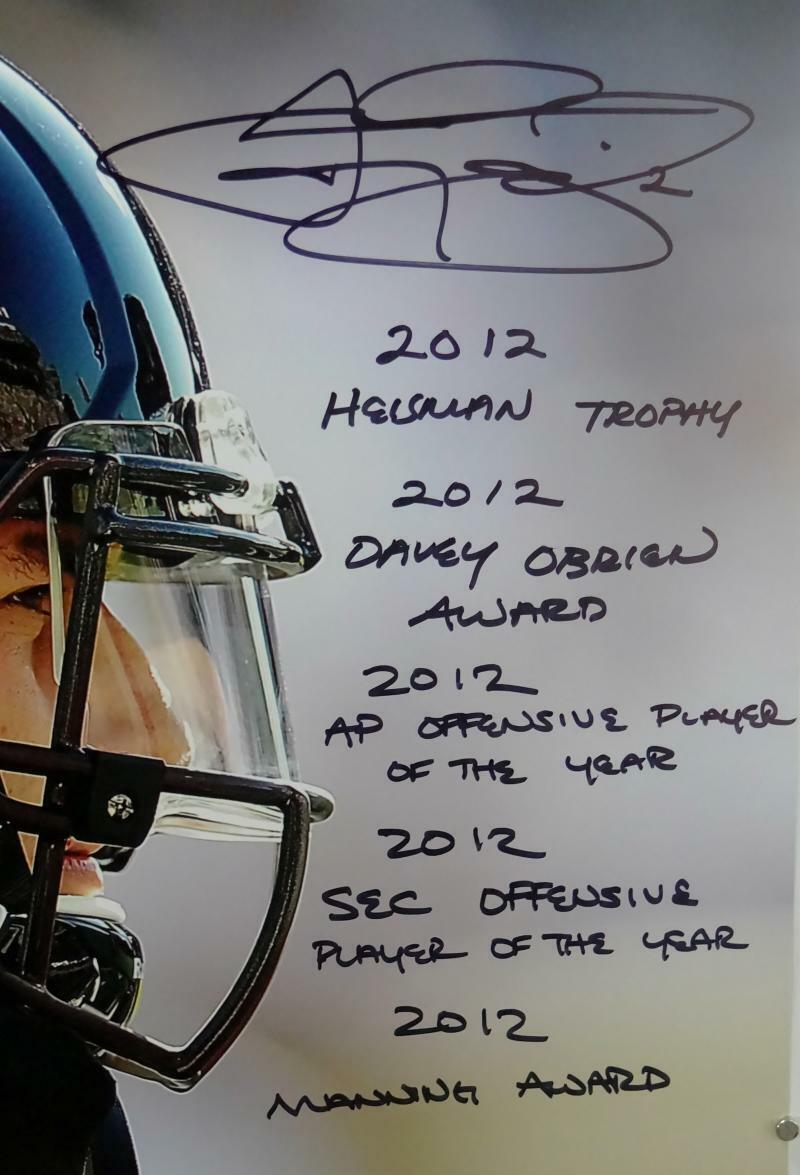 2
2012
HEISMAN TROPHY
2012
DAVEY OBRIEN
AWARD
2012
AP OFFENSIVE PLAYER
OF THE YEAR
2012
SEC OFFENSIVE
PLAYER OF THE YEAR
2012
MANNING AWARD